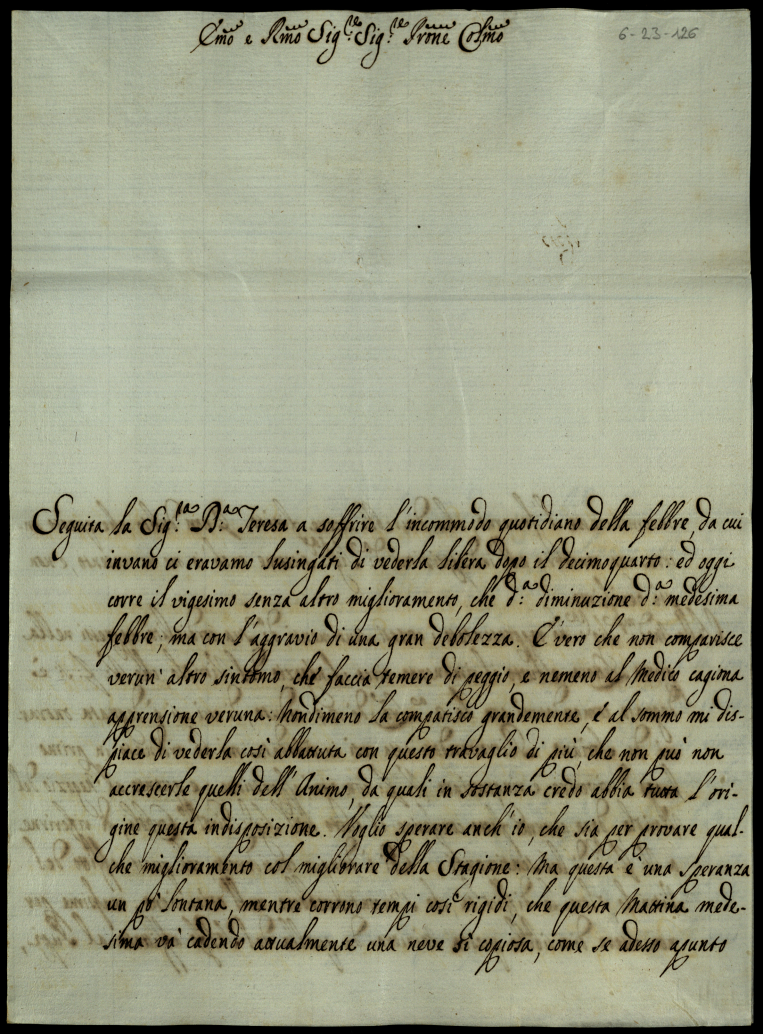 Emo e Rmo Sig.re Sig.re Prone Colmo
6-23-126
Seguita la Sig.ra B.a Teresa a soffrire l'incommodo quotidiano della febbre, da cui
invano ci eravamo lusingati di vederla libera dopo il decimoquarto: ed oggi
corre il vigesimo senza altro miglioramento, che d.a diminuzione d.a medesima
febbre; ma con l'aggravio di una gran debolezza. E' vero che non comparisce
verun' altro sintomo, che faccia temere di peggio, e nemeno al Medico cagiona
apprensione veruna: Nondimeno la compatisco grandemente, e al sommo mi dis-
piace di vederla così abbattuta con questo travaglio di più, che non può non
accrescerle quelli dell'Animo, da quali in sostanza credo abbia tutta l'ori-
gine questa indisposizione. Voglio sperare anch'io, che sia per provare qual-
che miglioramento col migliorare della Stagione: Ma questa è una speranza
un po' lontana, mentre corrono tempi così rigidi, che questa Mattina mede-
sima và cadendo attualmente una neve sì copiosa, come se adesso apunto